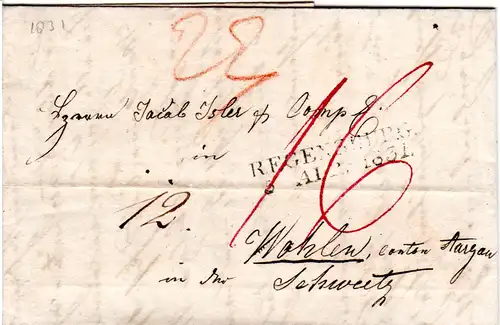 1831
Herrn Jacob Isler & Comp.
in
REGENSBURG
1831.
16
12.
Wohlen, canton Aargau
in der Schweitz